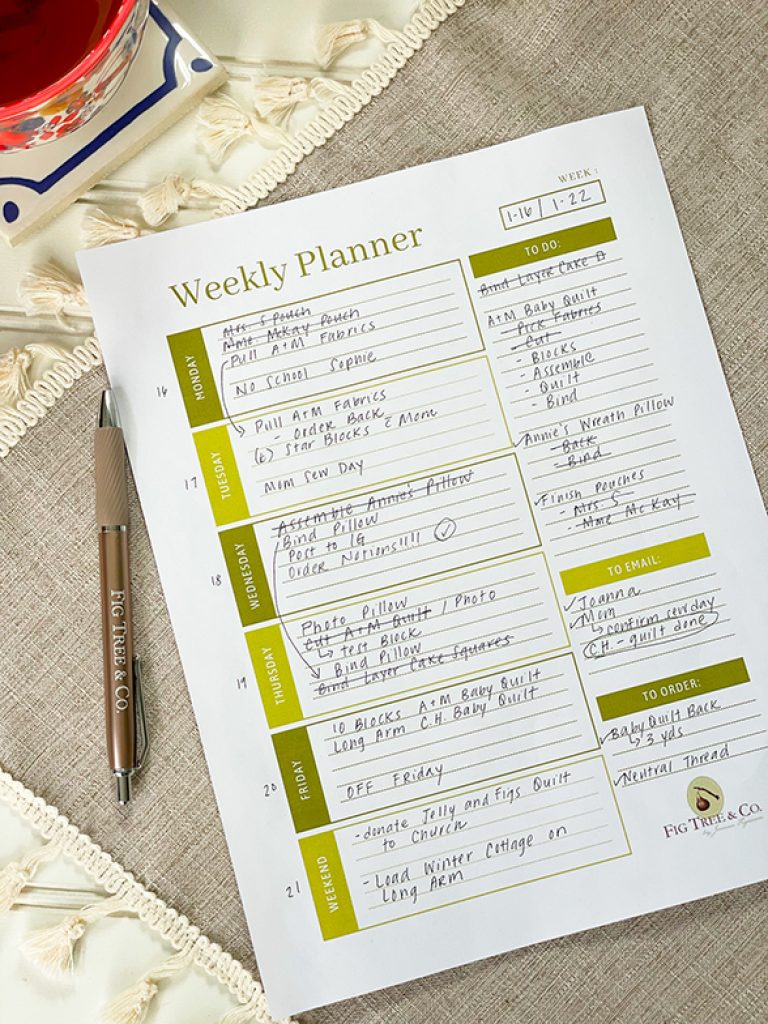 WEEK:
1-16 / 1-22
Weekly Planner
16
MONDAY
Mrs. S Pouch
Mme. McKay Pouch
Pull A+M Fabrics
No School Sophie
17
TUESDAY
Pull A+M Fabrics
- Order Back
(6) Star Blocks c̄ Mom
Mom Sew Day
18
WEDNESDAY
Assemble Annie's Pillow
Bind Pillow
Post to IG
Order Notions!!!! ✓
19
THURSDAY
Photo Pillow
Cut A+M Quilt / Photo
↳ Test Block
Bind Pillow
Bind Layer Cake Squares
20
FRIDAY
10 Blocks A+M Baby Quilt
Long Arm C.H. Baby Quilt
OFF Friday
21
WEEKEND
- donate Jelly and Figs Quilt
to Church
- Load Winter Cottage on
Long Arm
TO DO:
Bind Layer Cake
A+M Baby Quilt
- Pick Fabrics
- Cut
- Blocks
- Assemble
- Quilt
- Bind
✓ Annie's Wreath Pillow
- Back
- Bind
✓ Finish Pouches
- Mrs. S
- Mme McKay
TO EMAIL:
✓ Joanna
✓ Mom
↳ confirm sew day
C.H. - quilt done
TO ORDER:
✓ Baby Quilt Back
↳ 3 yds
✓ Neutral Thread
FIG TREE & CO.
FIG TREE & CO.